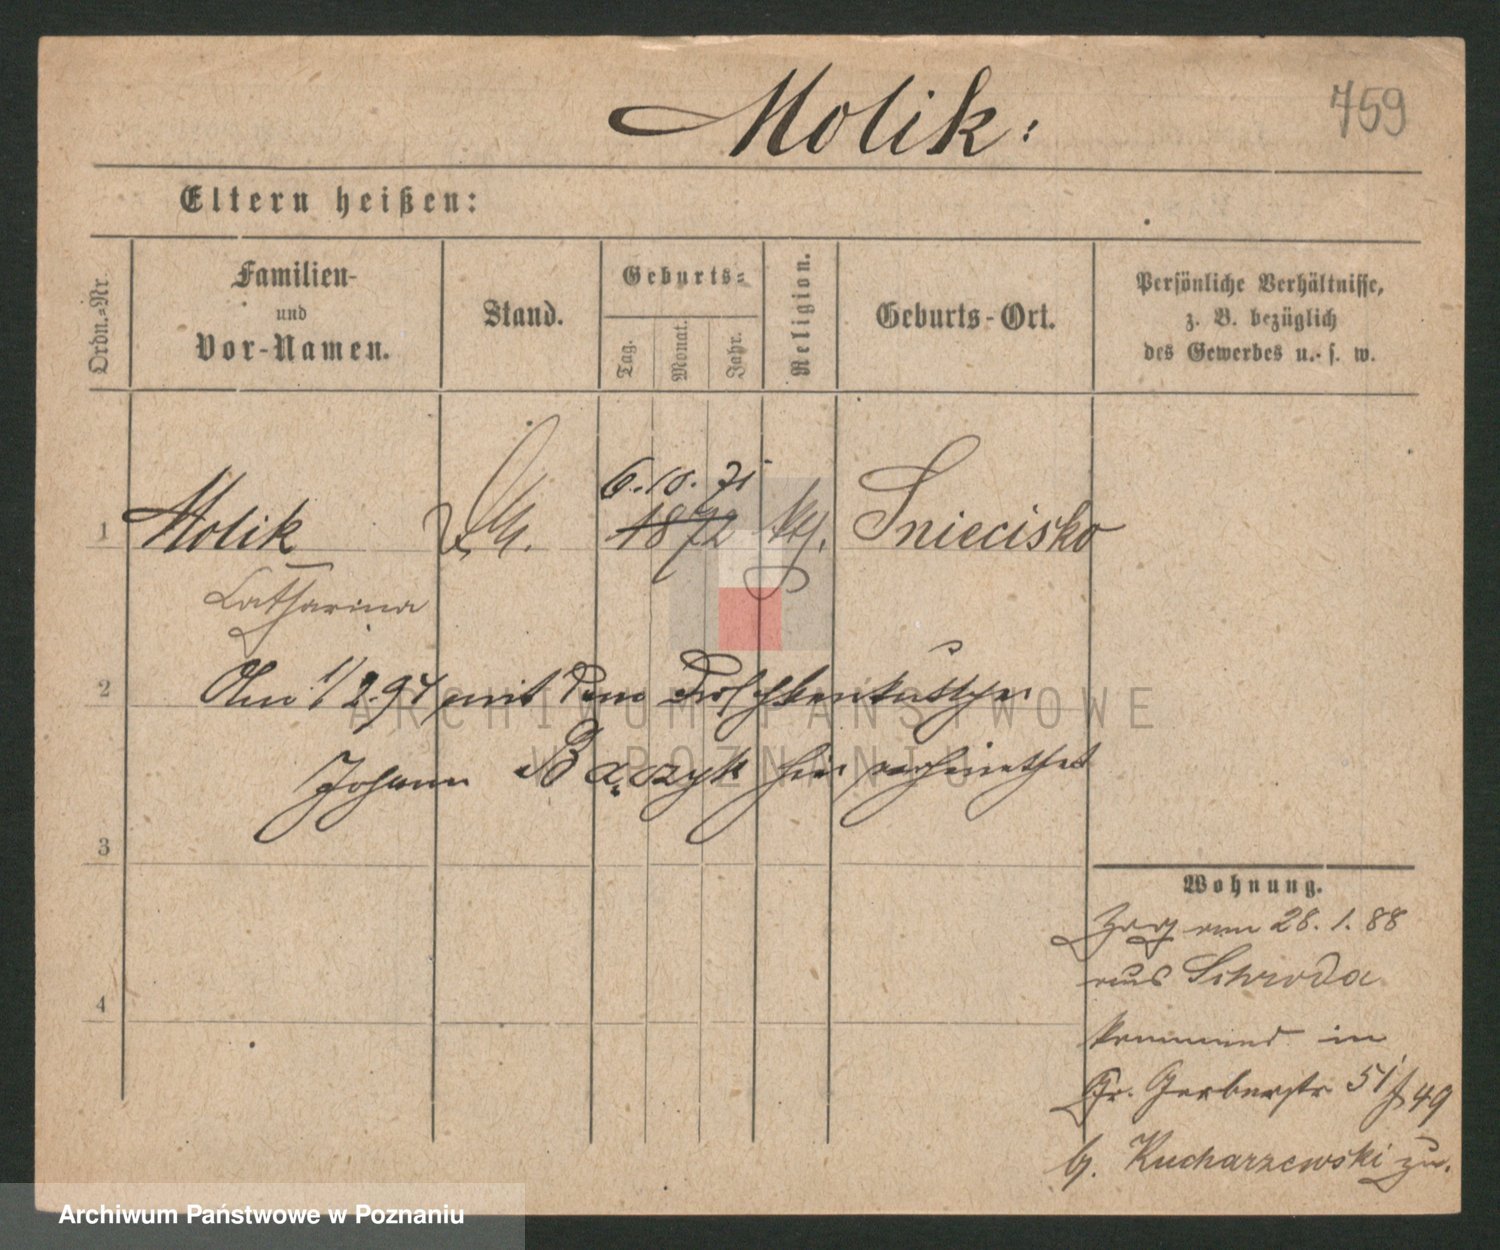 Molik:
759
Eltern heißen:
Ordn.-Nr.
Familien-
und
Vor-Namen.
Stand.
Geburts-
Tag.
Monat.
Jahr.
Religion.
Geburts-Ort.
Persönliche Verhältnisse,
z. B. bezüglich
des Gewerbes u. s. w.
6. 10. 71
1 Molik 1872 Sniecisko
Catharina
2 Am 1/2.94 mit dem Droschkenkutscher
Johann Bączyk hier verheirathet
3
Wohnung.
Zog am 28. 1. 88
aus Schroda
kommend in
4
Gr. Gerberstr 51 49
b. Kucharzewski zu.
ARCHIWUM PAŃSTWOWE
W POZNANIU
Archiwum Państwowe w Poznaniu